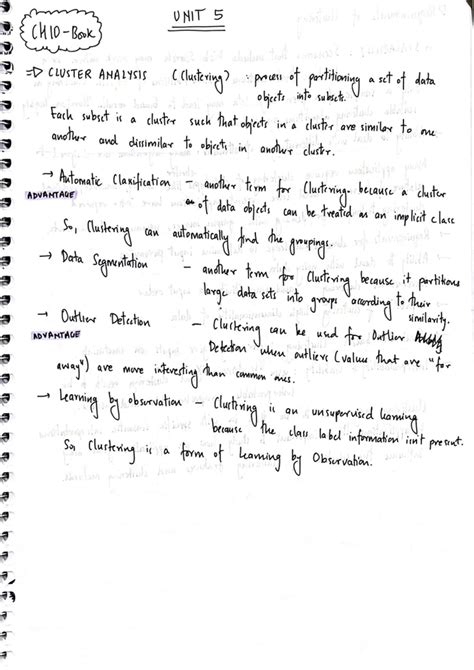 UNIT 5
CH10-Book
⇒ CLUSTER ANALYSIS (Clustering) : process of partitioning a set of data
objects into subsets.
Each subset is a cluster such that objects in a cluster are similar to one
another and dissimilar to objects in another cluster.
→ Automatic Clasification – another term for Clustering because a cluster
ADVANTAGE
of data objects can be treated as an implicit class
So, Clustering can automatically find the groupings.
→ Data Segmentation – another term for Clustering because it partitions
large data sets into groups according to their
similarity.
→ Outlier Detection – Clustering can be used for Outlier
ADVANTAGE
Detection when outliers (values that are "far
away") are more interesting than common ones.
→ Learning by observation – Clustering is an unsupervised learning
because the class label information isn't present.
So, Clustering is a form of Learning by Observation.